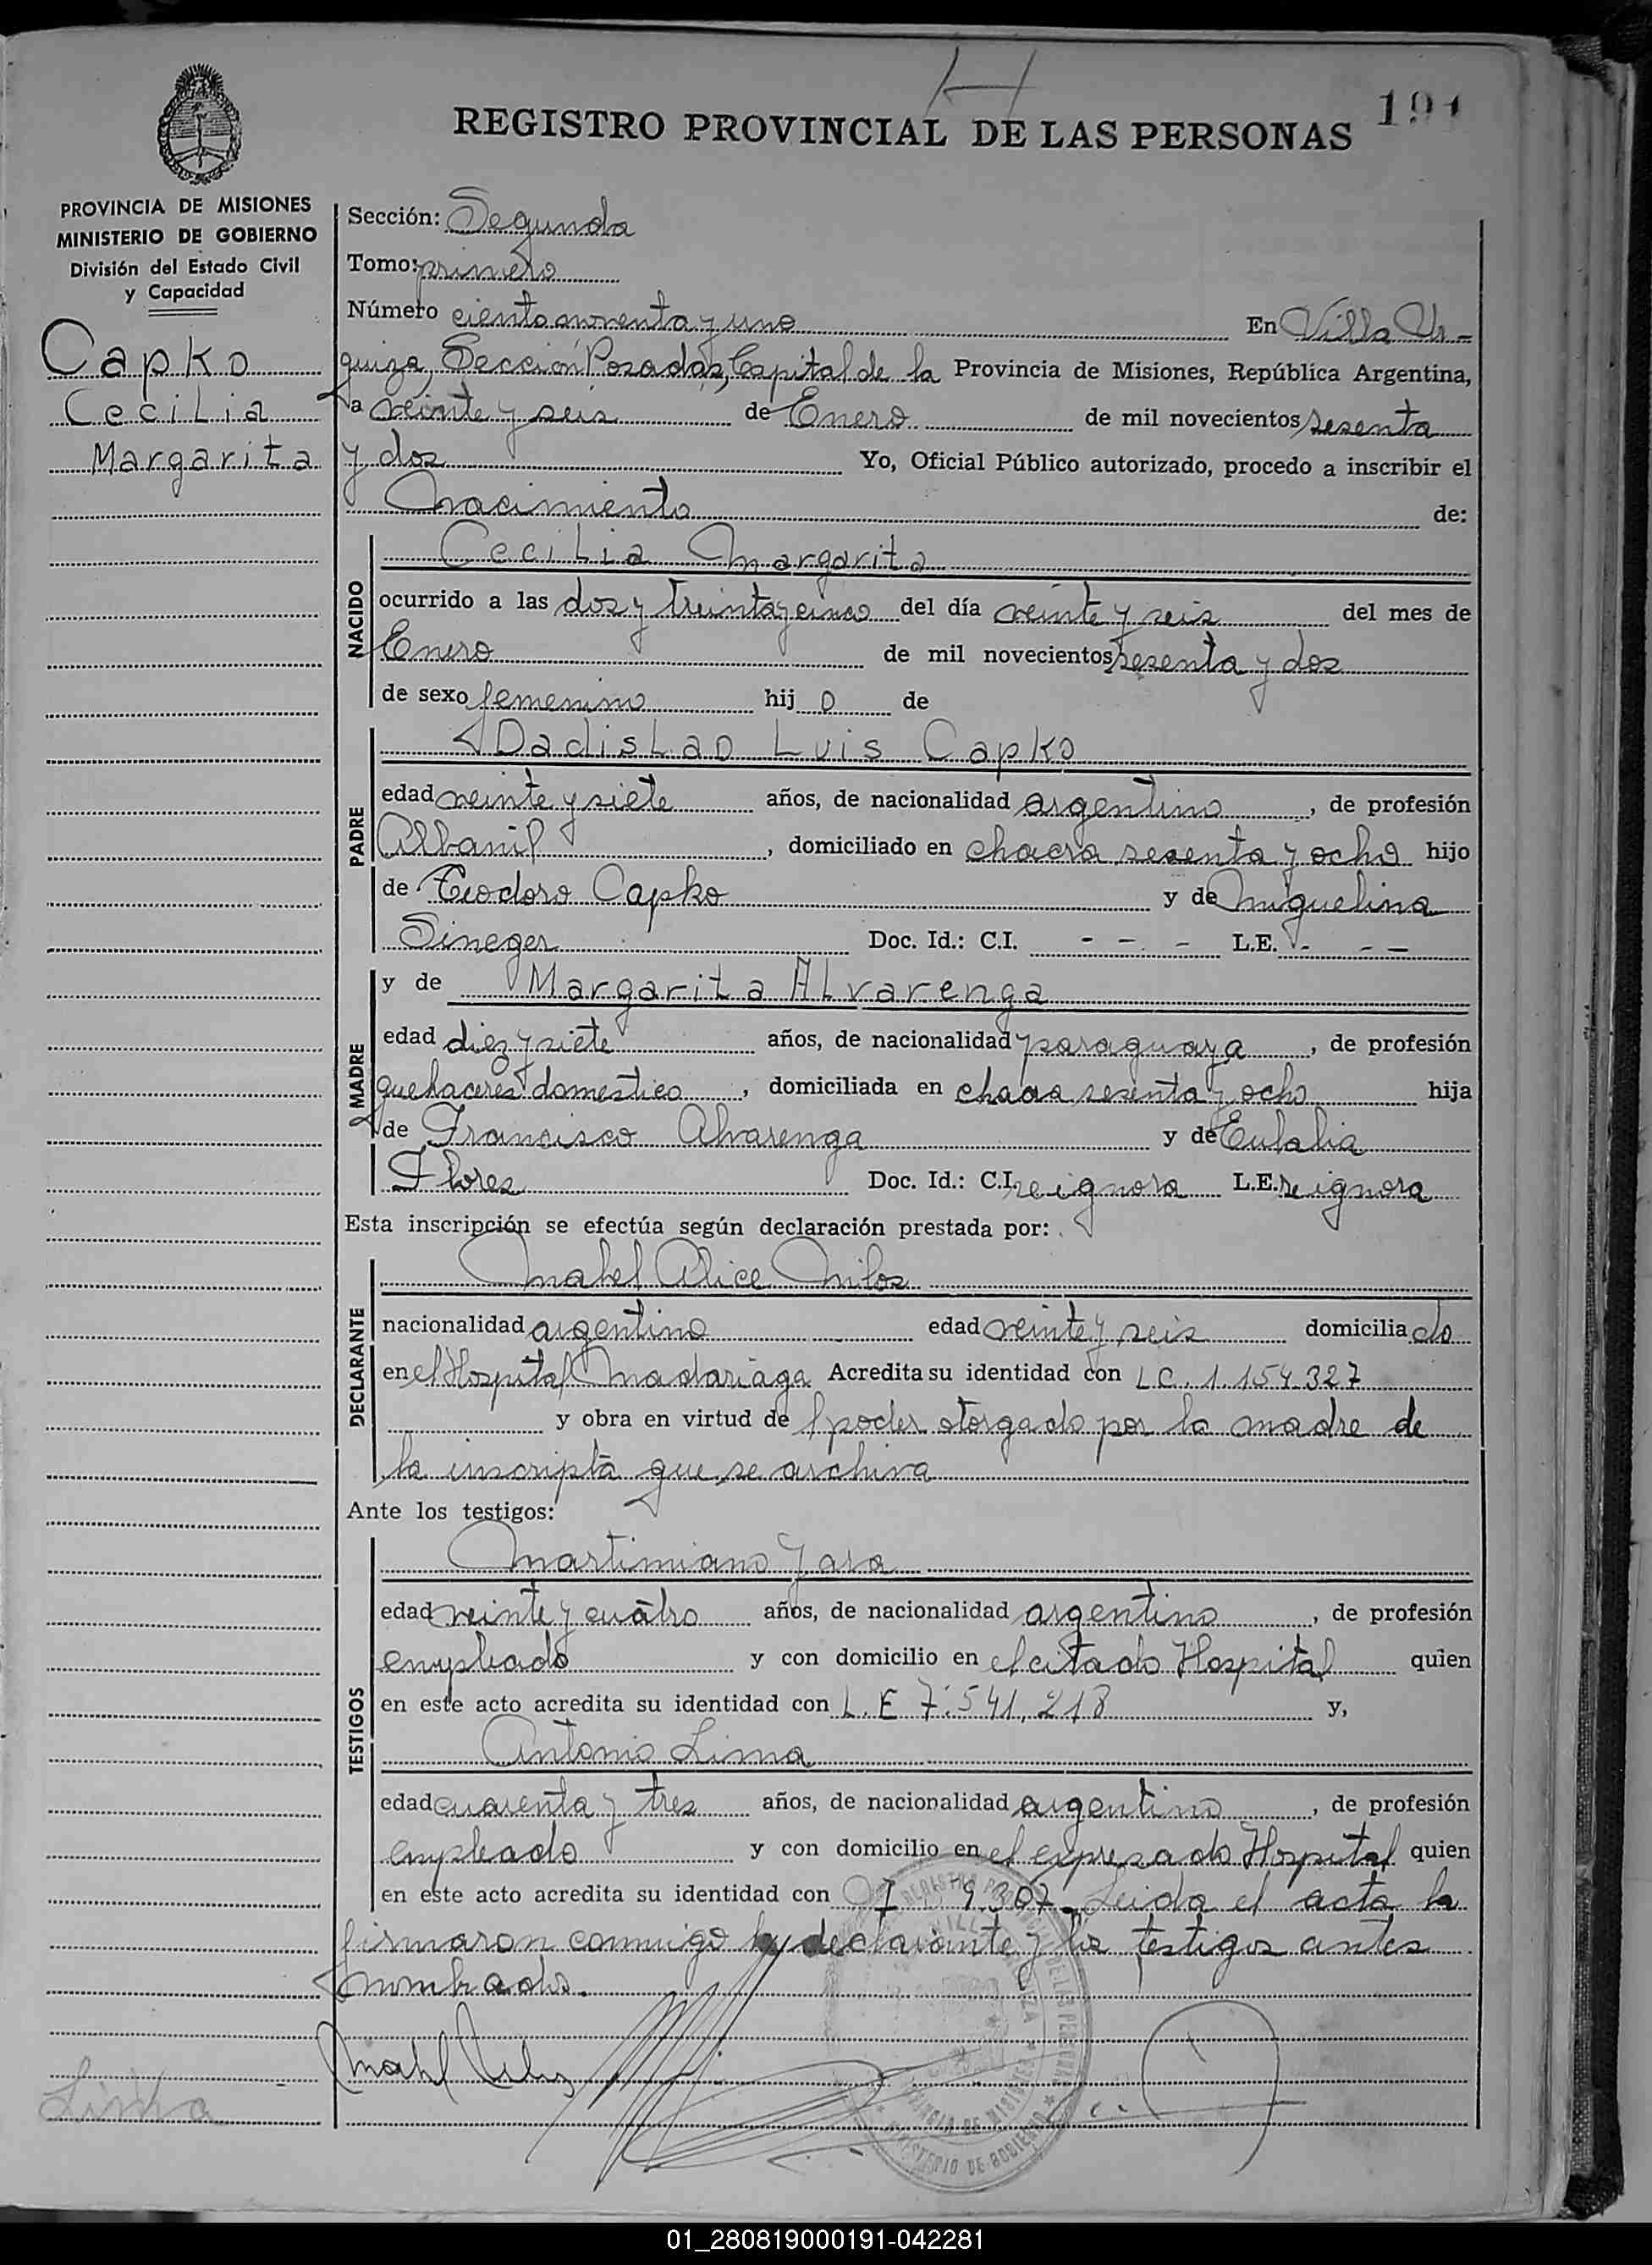 191
REGISTRO PROVINCIAL DE LAS PERSONAS
PROVINCIA DE MISIONES
MINISTERIO DE GOBIERNO
División del Estado Civil
y Capacidad
Capko
Cecilia
Margarita
Sección: Segunda
Tomo: primero
Número ciento noventa y uno En Villa Ur-
quiza, Sección Posadas, Capital de la Provincia de Misiones, República Argentina,
a veinte y seis de Enero de mil novecientos sesenta
y dos Yo, Oficial Público autorizado, procedo a inscribir el
nacimiento de:
NACIDO
Cecilia Margarita
ocurrido a las dos y treinta y cinco del día veinte y seis del mes de
Enero de mil novecientos sesenta y dos
de sexo femenino hij o de
PADRE
Dadislao Luis Capko
edad veinte y siete años, de nacionalidad argentino, de profesión
Albanil, domiciliado en chacra sesenta y ocho hijo
de Teodoro Capko y de Miguelina
Sineger Doc. Id.: C.I. - - - L.E. - - -
MADRE
y de Margarita Alvarenga
edad diez y siete años, de nacionalidad paraguaya, de profesión
quehaceres domestico, domiciliada en chacra sesenta y ocho hija
de Francisco Alvarenga y de Eulalia
Flores Doc. Id.: C.I. se ignora L.E. se ignora
Esta inscripción se efectúa según declaración prestada por:
DECLARANTE
Mabel Alice Milos
nacionalidad argentino edad veinte y seis domicilia do
en el Hospital Madariaga Acredita su identidad con L C. 1.154.327
y obra en virtud de poder otorgado por la madre de
la inscripta que se archiva
Ante los testigos:
TESTIGOS
Martimiano Jara
edad veinte y cuatro años, de nacionalidad argentino, de profesión
empleado y con domicilio en el citado Hospital quien
en este acto acredita su identidad con L. E 7.541.218 y,
Antonio Lima
edad cuarenta y tres años, de nacionalidad argentino, de profesión
empleado y con domicilio en el expresado Hospital quien
en este acto acredita su identidad con 9.307. Leida el acta la
firmaron conmigo declarante y los testigos antes
nombrados.
Lima
01_280819000191-042281